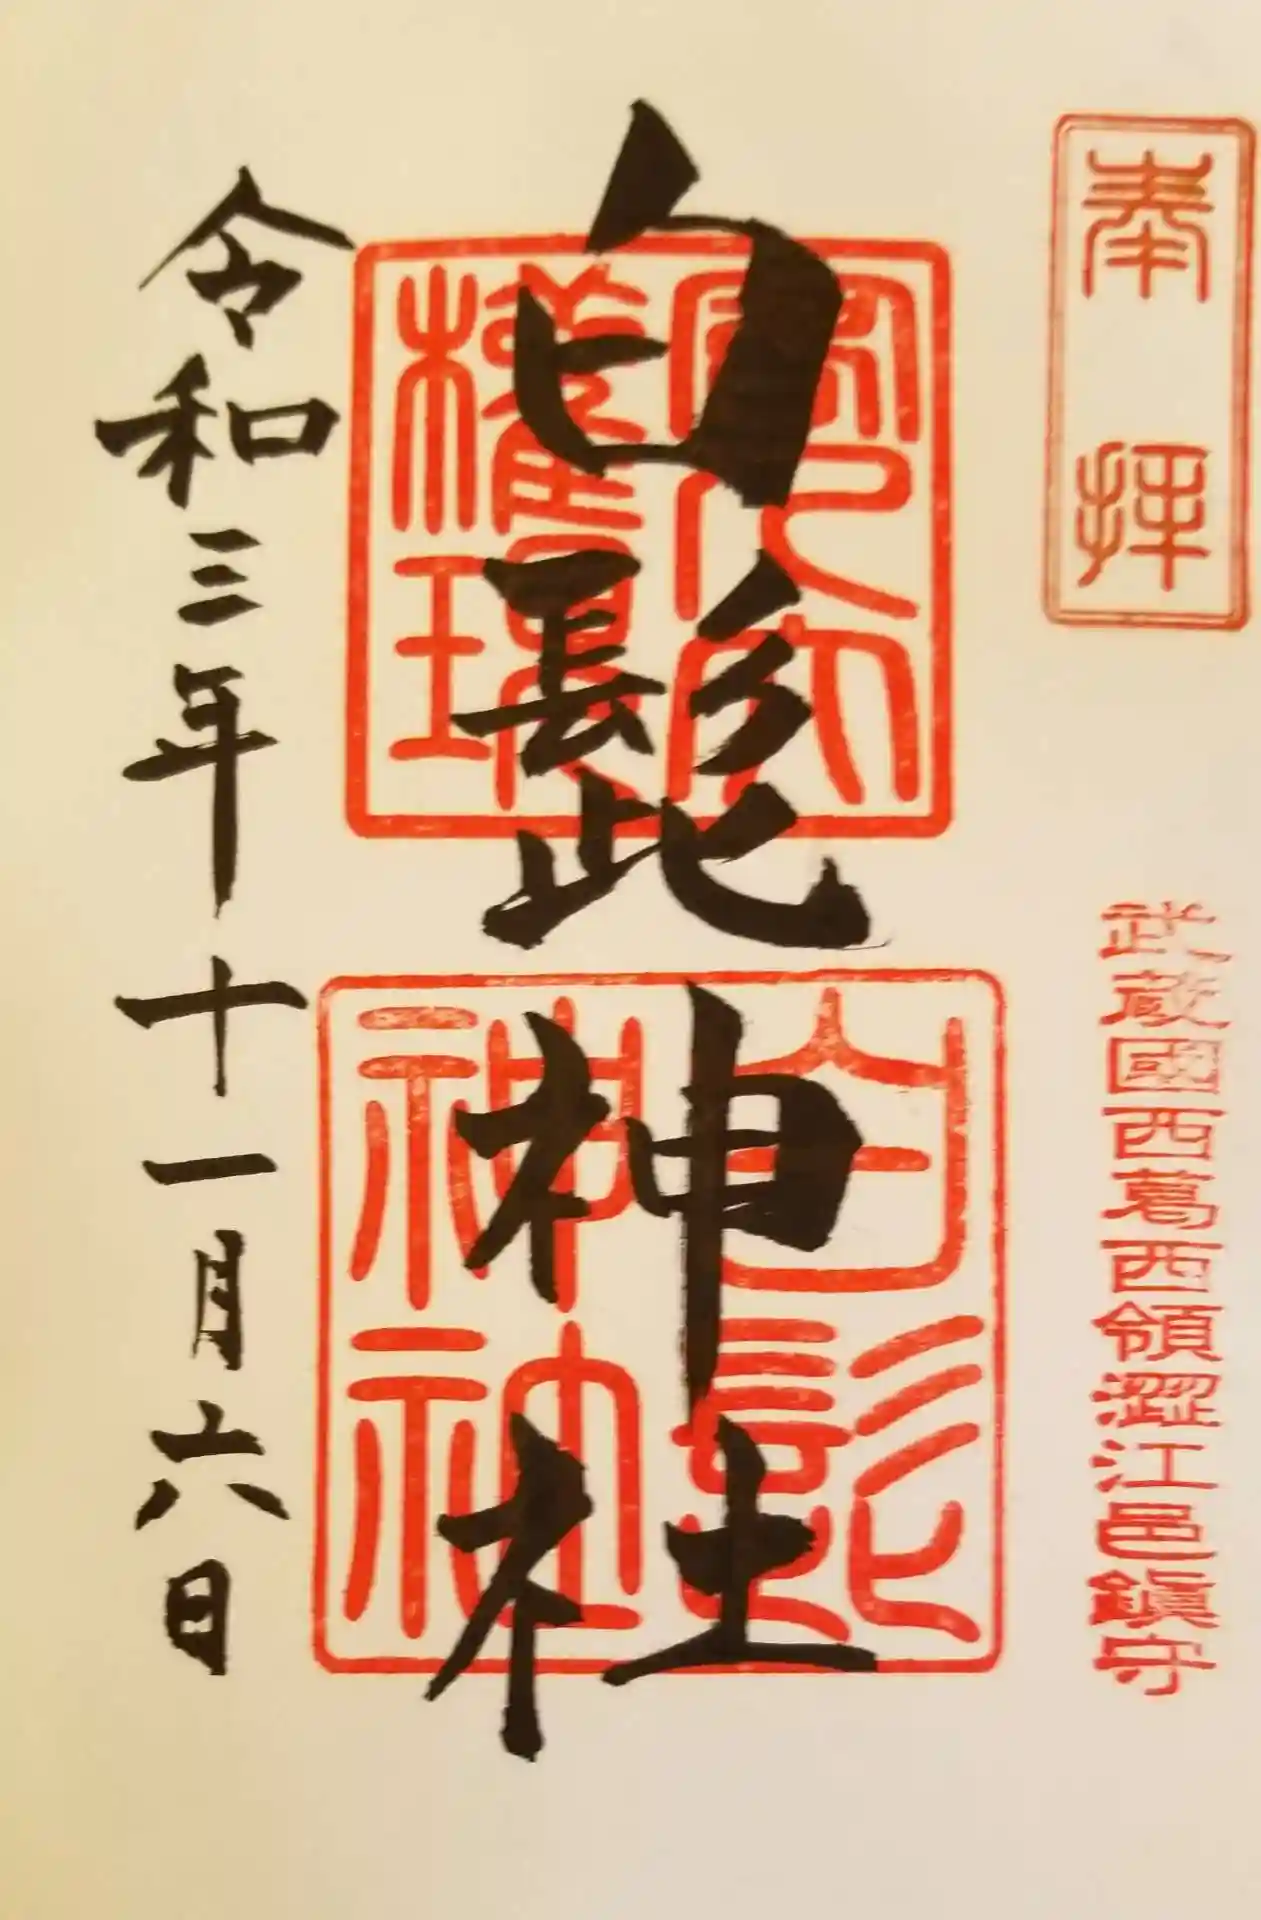 奉拝
武蔵國西葛西領澀江邑鎭守
客人大
權現
白髭神社
白髭
神社
令和三年十一月六日